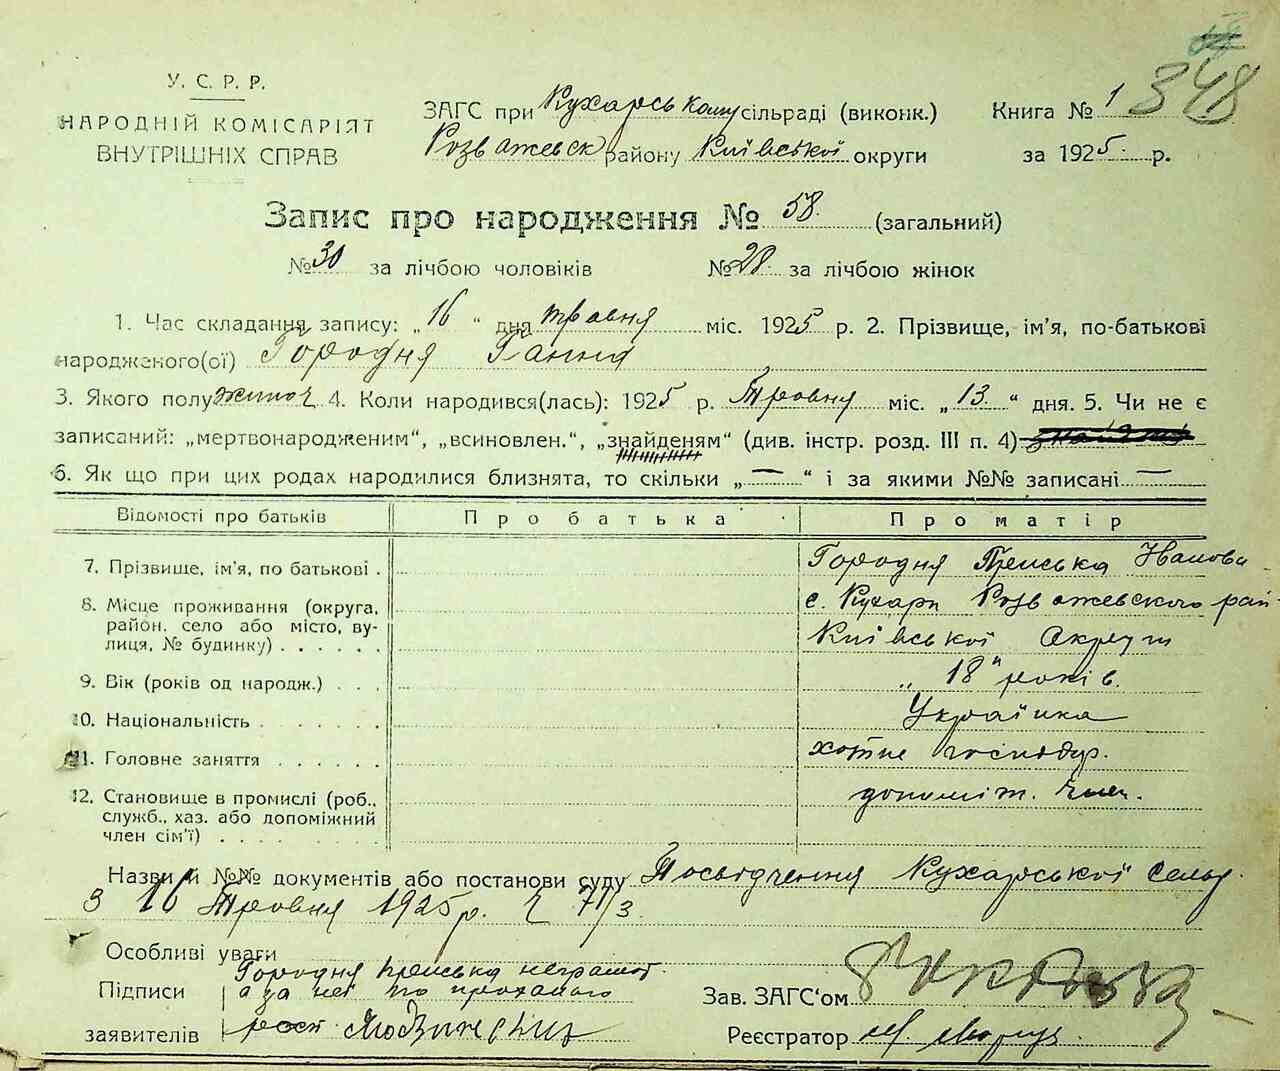 348
У. С. Р. Р.
НАРОДНІЙ КОМІСАРІЯТ
ВНУТРІШНІХ СПРАВ
ЗАГС при Кухарському сільраді (виконк.) Книга № 1
Розважевск району Київської округи за 1925 р.
Запис про народження № 58 (загальний)
№ 30 за лічбою чоловіків № 28 за лічбою жінок
1. Час складання запису: „16“ дня травня міс. 1925 р. 2. Прізвище, ім'я, по-батькові
народженого(ої) Городня Ганна
3. Якого полу жиноч 4. Коли народився(лась): 1925 р. Травня міс. „13“ дня. 5. Чи не є
записаний: „мертвонародженим“, „всиновлен.“, „знайденям“ (див. інстр. розд. III п. 4)
6. Як що при цих родах народилися близнята, то скільки „—“ і за якими №№ записані —
Відомості про батьків Про батька Про матір
7. Прізвище, ім'я, по батькові . Городня Пріська Іванова
8. Місце проживання (округа, район, село або місто, вулиця, № будинку) . . . . . . с. Кухари Розважевского рай-
Київської Округи
9. Вік (років од народж.) . . . „18“ років.
10. Національність . . . . . . . Українка
11. Головне заняття . . . . . . хотне господар.
12. Становище в промислі (роб., служб., хаз. або допоміжний член сім'ї) . . . . . . допоміж. член.
Назви й №№ документів або постанови суду Посвідчення Кухарської Сельр.
з 16 Травня 1925 р. 71/3
Особливі уваги
Підписи заявителів
Городня Пріська неграмот.
а за неї по проханню
рост
Зав. ЗАГС'ом
Реєстратор